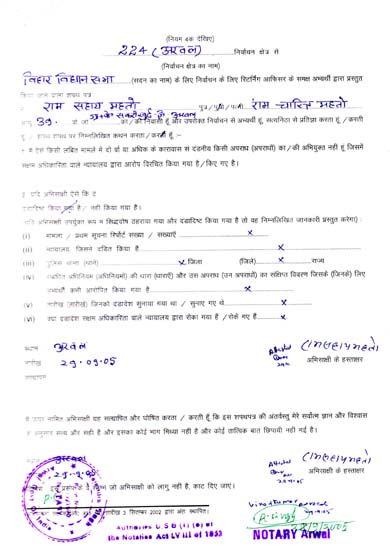 (नियम 4क देखिए)
224 (अरवल) निर्वाचन क्षेत्र से
(निर्वाचन क्षेत्र का नाम)
बिहार विधान सभा (सदन का नाम) के लिए निर्वाचन के लिए रिटर्निंग आफिसर के समक्ष अभ्यर्थी द्वारा प्रस्तुत
किया जाने वाला शपथ पत्र
राम सहाय महतो पुत्र/पुत्री/पत्नी राम चरित्र महतो
आयु 39. का/की निवासी हूँ और उपरोक्त निर्वाचन से अभ्यर्थी हूं, सत्यनिष्ठा से प्रतिज्ञा करता हूं /करती
हूं / शपथ पर निम्नलिखित कथन करता/करती हूं :-
मैं ऐसे किसी लंबित मामले में दो वर्ष या अधिक के कारावास से दंडनीय किसी अपराध (अपराधों) का/की अभियुक्त नहीं हूं जिसमें
सक्षम अधिकारिता वाले न्यायालय द्वारा आरोप विरचित किया गया है/किए गए है।
यदि अभिसाक्षी ऐसे कि
दंडादिष्ट किया गया है/ नहीं किया गया है।
यदि अभिसाक्षी उपर्युक्त रूप में सिद्धदोष ठहराया गया और दंडादिष्ट किया गया है तो वह निम्नलिखित जानकारी प्रस्तुत करेगा :
(i) मामला / प्रथम सूचना रिपोर्ट संख्या / संख्याएँ x
(ii) न्यायालय जिसने दंडित किया है x
(iii) पुलिस थाना (थाने) x जिला (जिले) x राज्य
(iv) संबंधित अधिनियम (अधिनियमों) की धारा (धाराएँ) और उस अपराध (उन अपराधों) का संक्षिप्त विवरण जिसके (जिनके) लिए
अभ्यर्थी को आरोपित किया गया है x
(v) तारीख (तारीखें) जिनको दंडादेश सुनाया गया था / सुनाए गए थे x
(vi) क्या दंडादेश सक्षम अधिकारिता वाले न्यायालय द्वारा रोका गया है /रोके गए हैं x
स्थान अरवल
तारीख 29.09.05
अभिसाक्षी के हस्ताक्षर
सत्यापन
नामित अभिसाक्षी यह सत्यापित और घोषित करता / करती हूँ कि इस शपथपत्र की अंतर्वस्तु मेरे सर्वोत्तम ज्ञान और विश्वास
के अनुसार सत्य और सही है और इसका कोई भाग मिथ्या नहीं है और कोई तात्विक बात छिपायी नहीं गई है।
अरवल
29.9.05
अभिसाक्षी के हस्ताक्षर
जो अभिसाक्षी को लागू नहीं है, काट दिए जाएं।
तारीख 3 सितम्बर 2002 द्वारा अंतः स्थापित।
Authorise U S 8 (i) (e) of
the Notaries Act LV III of 1953
NOTARY Arwal